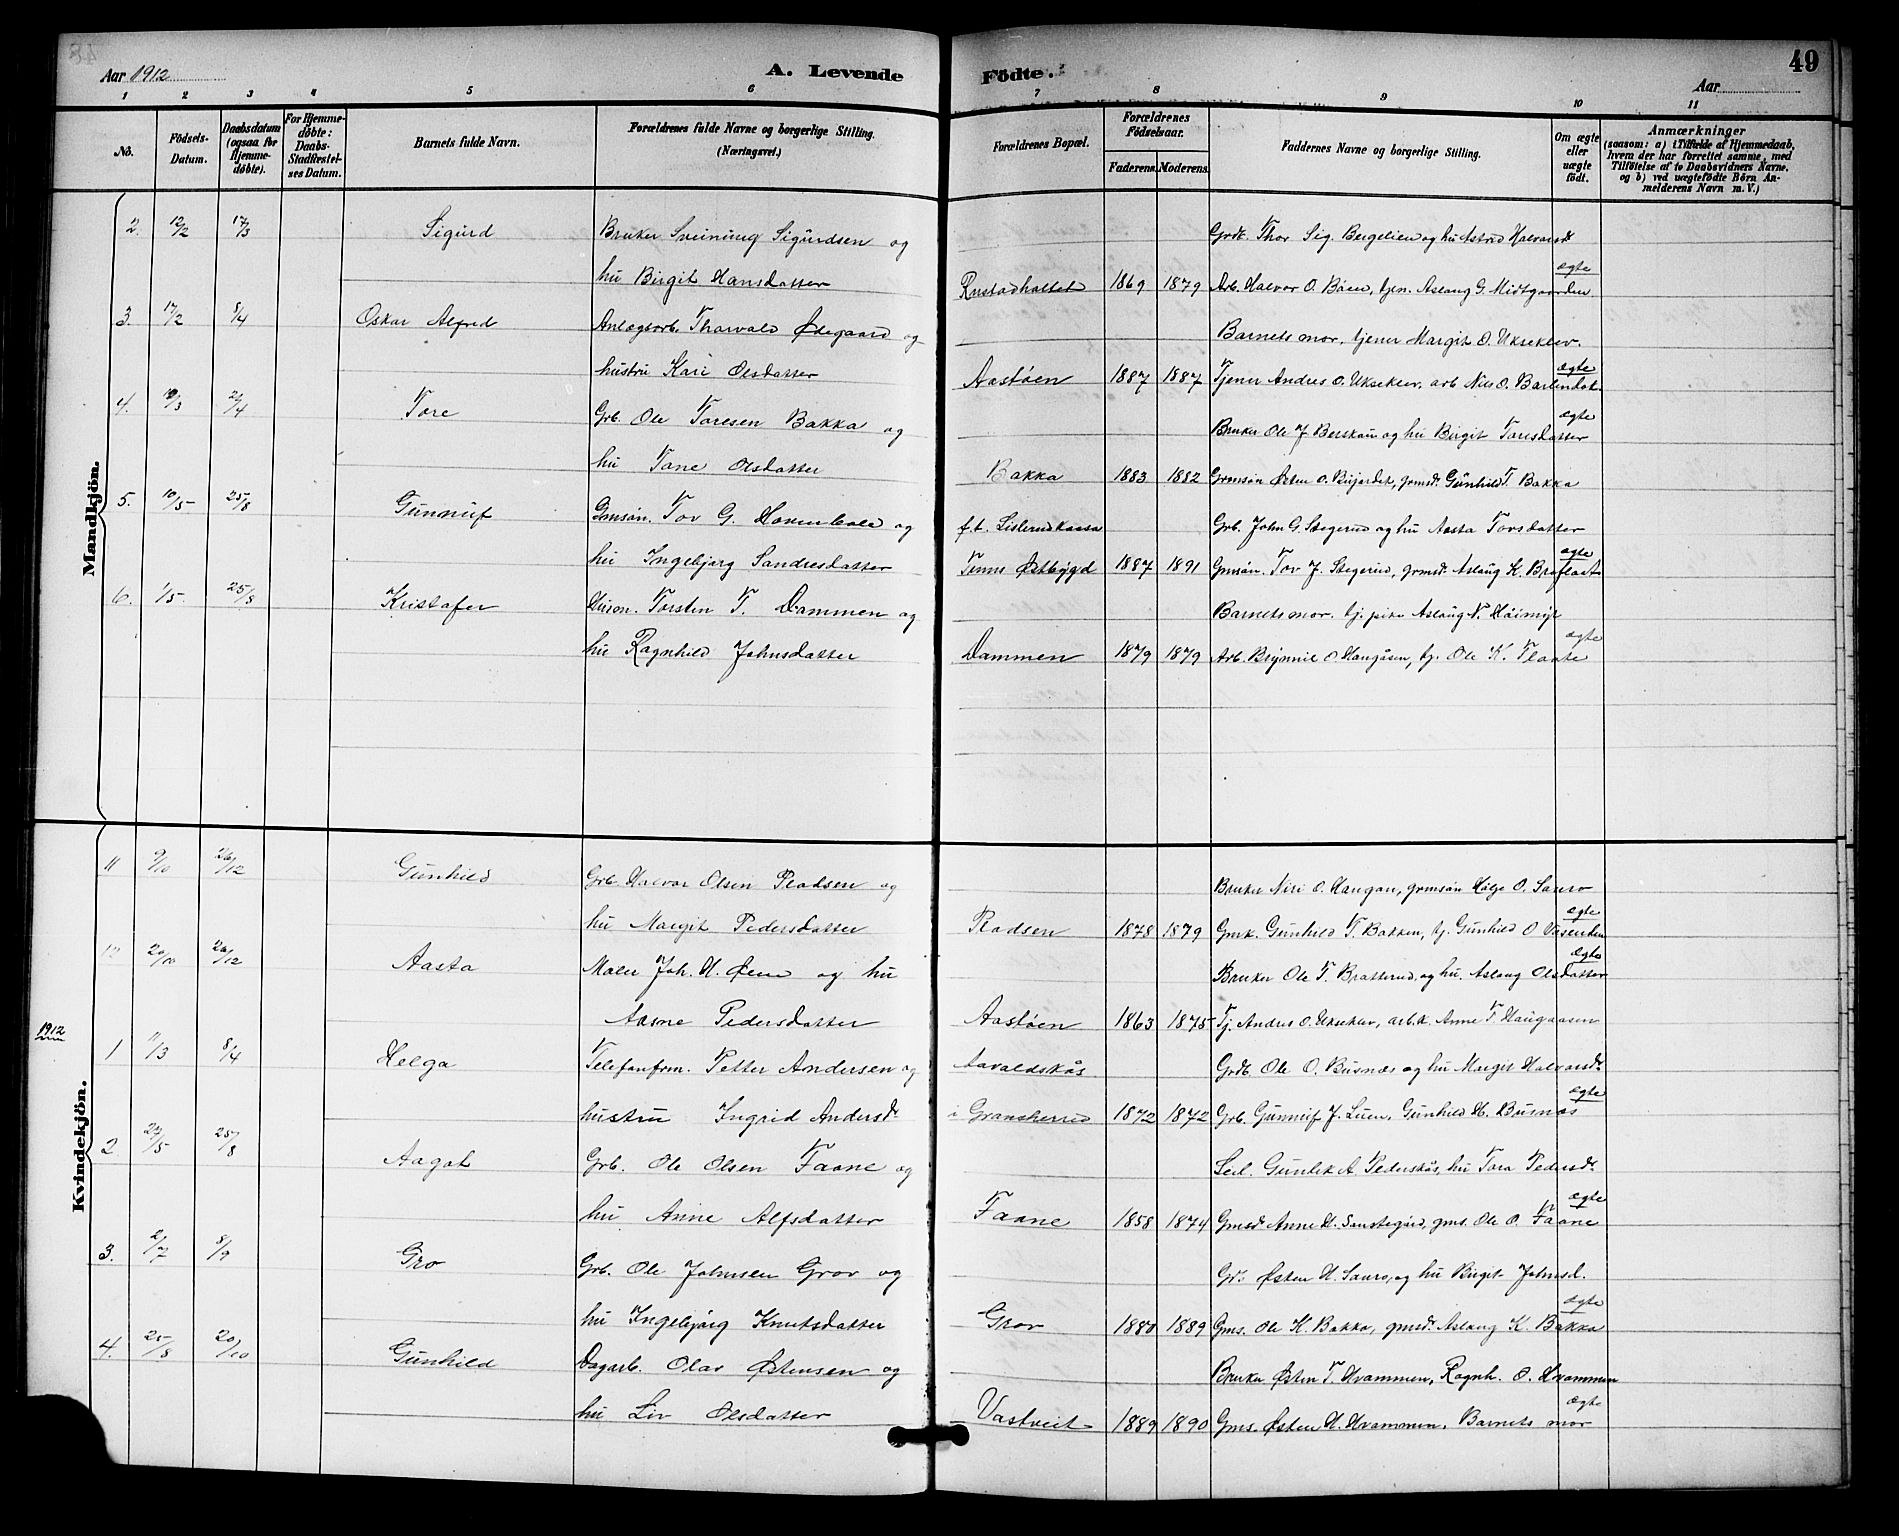 Aar 1912
A. Levende Födte.
49
Aar
1 2 3 4 5 6 7 8 9 10 11
No.
Födsels-Datum.
Daabsdatum (ogsaa for Hjemmedöbte).
For Hjemmedöbte: Daabs-Stadfæstelses Datum.
Barnets fulde Navn.
Forældrenes fulde Navne og borgerlige Stilling. (Næringsvei.)
Forældrenes Bopæl.
Forældrenes Födselsaar.
Faderens. Moderens.
Faddernes Navne og borgerlige Stilling.
Om ægte eller uægte födt.
Anmærkninger
(saasom: a) i Tilfælde af Hjemmedaab, hvem der har forrettet samme, med Tilföielse af to Daabsvidners Navne, og b) ved uægtefödte Börn Anmelderens Navn m. V.)
Mandkjön.
2. 12/2 17/3 Sigurd Bruker Sveinung Sigurdsen og Grdb. Thor Sig. Bergelien og hu Astrid Halvorsdr
hu Birgit Hansdatter Rustadhaltet 1869 1879 Arb. Halvor O. Böen, tjen. Aslaug G. Midtgaarden ægte
3. 17/2 8/4 Oskar Alfred Anlægsarb. Tharvald Ødegaard og Barnets mor, tjener Margit O. Ukseklev.
hustru Kari Olsdatter Aastöen 1887 1887 Tjener Andres O. Ukseklev, arb Nils O. ægte
4. 21/4 Tore Grb. Ole Toresen Bakka og Bruker Ole J og hu Birgit Toresdatter ægte
hu Tone Olsdatter Bakka 1883 1882 Grmsön Østen O. grmsd. Gunhild T. Bakka
5. 10/5 25/8 Gunnuf Gmsön. Tov G. og f.t. Grb. John G. Stegerud og hu Aasta Torsdatter
hu Ingebjørg Sandresdatter Tinns Østbygd 1887 1891 Gmsön. Tov J. Stegerud, grmsd. Aslaug K. ægte
6. 1/5 25/8 Kristofer Husm. Torsten T. Dammen og Barnets mor. tj. pike Aslaug N. Höimyr
hu Ragnhild Johnsdatter Dammen 1879 1879 Arb. Brynnil O Haugåsen, tj. Ole K. Flaate ægte
Kvindekjön.
11 9/10 26/12 Gunhild Grb. Halvor Olsen Pladsen og Bruker Niri O. Haugan, grmsön Hølje O. Sauro
hu Margit Pedersdatter Pladsen 1878 1879 Gmk. Gunhild T. Bakken, tj. Gunhild O Vasenden ægte
12 20/10 26/12 Aasta Maler Joh. H. Øine og hu Bruker Ole T. Bratterud og hu. Aslaug Olsdatter ægte
Aasne Pedersdatter Aastöen 1863 1875 Tj. Andres O. Uksekler, arb.k. Anne T. Haugaasen
1912
1 11/3 8/4 Helga Telefonfrm. Petter Andersen og Aavaldskås Grdb. Ole O. Busnæs og hu Margit Halvorsdr
hustru Ingrid Andersdr i Gransherred 1872 1872 Grb. Gunnuf J. Luen, Gunhild H. Busnæs ægte
2. 23/5 25/8 Aagot Grb. Ole Olsen Faane og Seil. Gunlek A. Pederskås, hu Tora Pedersdr
hu Anne Alfsdatter Faane 1858 1874 Gmsdr Anne H. gms. Ole O. Faane ægte
3. 2/7 8/9 Gro Grb. Ole Johnsen Grov og Gr. Østen H. Sauro, og hu Birgit Johnsd.
hu Ingebjørg Knutsdatter Grov 1880 1889 Gms. Ole K. Bakka, gmsdr Aslaug K. Bakka ægte
4. 25/8 20/10 Gunhild Dagarb. Olav Østensen og Bruker Østen T. Kvammen, Ragnh. O. Kvammen
hu Liv Olsdatter Vastveit 1889 1890 Gms. Østen H. Kvammen, Barnets mor ægte